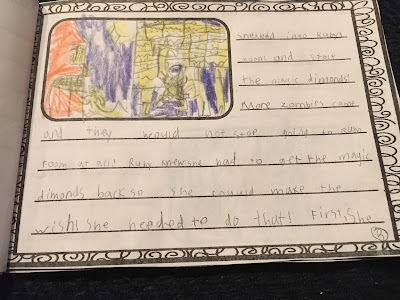 sneaked into Rubys
room and stole
the magic dimonds!
More zombies came
and they would not stop going to Rubys
room at all! Ruby knew she had to get the magic
dimonds back so she could make the
wish! She needed to do that! First, she